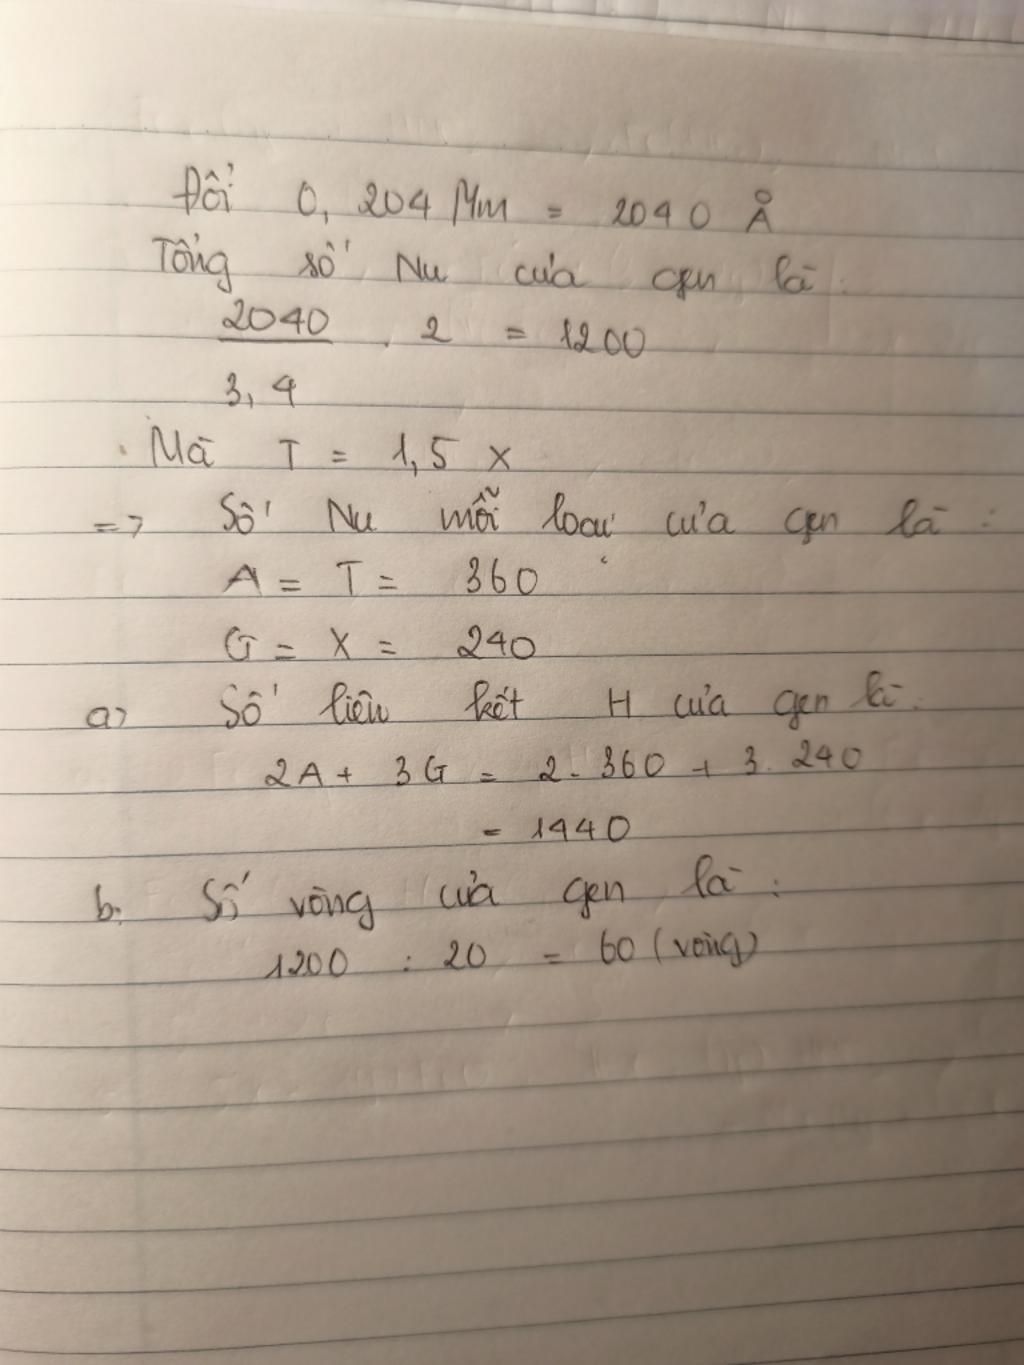 Đổi 0,204 Mm = 2040 Å
Tổng số Nu của gen là:
2040 . 2 = 1200
3,4
Mà T = 1,5 X
=> Số Nu mỗi loại của gen là:
A = T = 360
G = X = 240
a> Số liên kết H của gen là:
2A + 3G = 2. 360 + 3. 240
= 1440
b. Số vòng của gen là:
1200 : 20 = 60 (vòng)